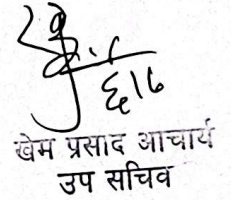 ६/७
खेम प्रसाद आचार्य
उप सचिव